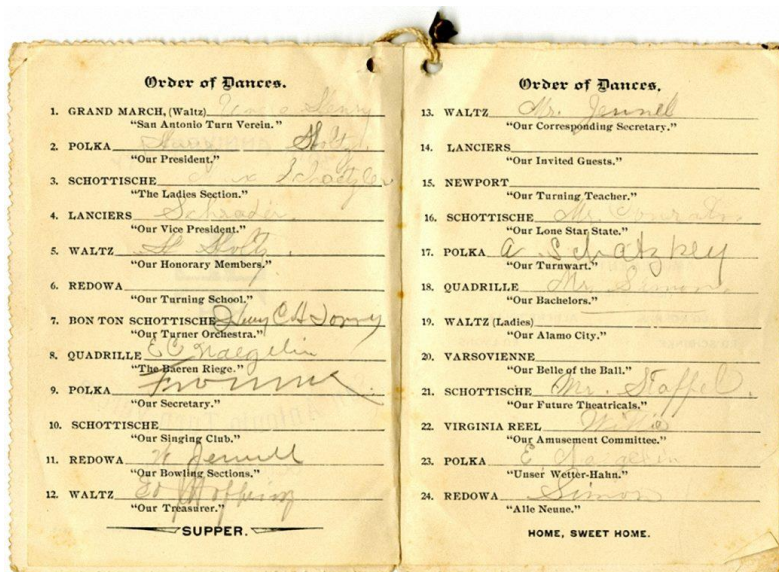 Order of Dances.
1. GRAND MARCH, (Waltz) Henry
"San Antonio Turn Verein."
2. POLKA Henry Holtz
"Our President."
3. SCHOTTISCHE
"The Ladies Section."
4. LANCIERS Schrader
"Our Vice President."
5. WALTZ H Holtz.
"Our Honorary Members."
6. REDOWA
"Our Turning School."
7. BON TON SCHOTTISCHE
"Our Turner Orchestra."
8. QUADRILLE E C Naegelin
"The Baeren Riege."
9. POLKA
"Our Secretary."
10. SCHOTTISCHE
"Our Singing Club."
11. REDOWA
"Our Bowling Sections."
12. WALTZ Ed
"Our Treasurer."
SUPPER.
Order of Dances.
13. WALTZ Mr.
"Our Corresponding Secretary."
14. LANCIERS
"Our Invited Guests."
15. NEWPORT
"Our Turning Teacher."
16. SCHOTTISCHE Mr.
"Our Lone State State."
17. POLKA A
"Our Turnwart."
18. QUADRILLE Mr. Simon
"Our Bachelors."
19. WALTZ (Ladies)
"Our Alamo City."
20. VARSOVIENNE
"Our Belle of the Ball."
21. SCHOTTISCHE Mr. Staffel.
"Our Future Theatricals."
22. VIRGINIA REEL Willie
"Our Amusement Committee."
23. POLKA E
"Unser Wetter-Hahn."
24. REDOWA Simon
"Alle Neune."
HOME, SWEET HOME.